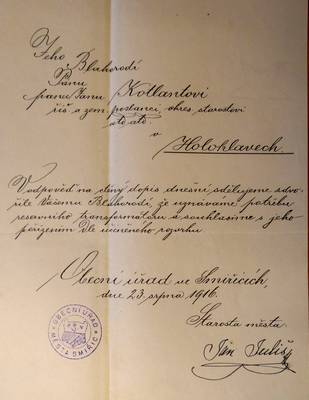 Jeho Blahorodí
Pánu
panu Janu Kotlantovi
říš. a zem. poslanci, okres. starostovi
atd. atd.
v
Holohlavech.
V odpověď na ctěný dopis dnešní, sdělujeme zdvo-
řile Vašemu Blahorodí, že uznáváme potřebu
reservního transformátoru a souhlasíme s jeho
pořízením dle učiněného rozvrhu.
Obecní úřad ve Smiřicích,
dne 23. srpna 1916.
Starosta města:
Jan
OBECNÍ ÚŘAD
MĚSTA SMIŘIC